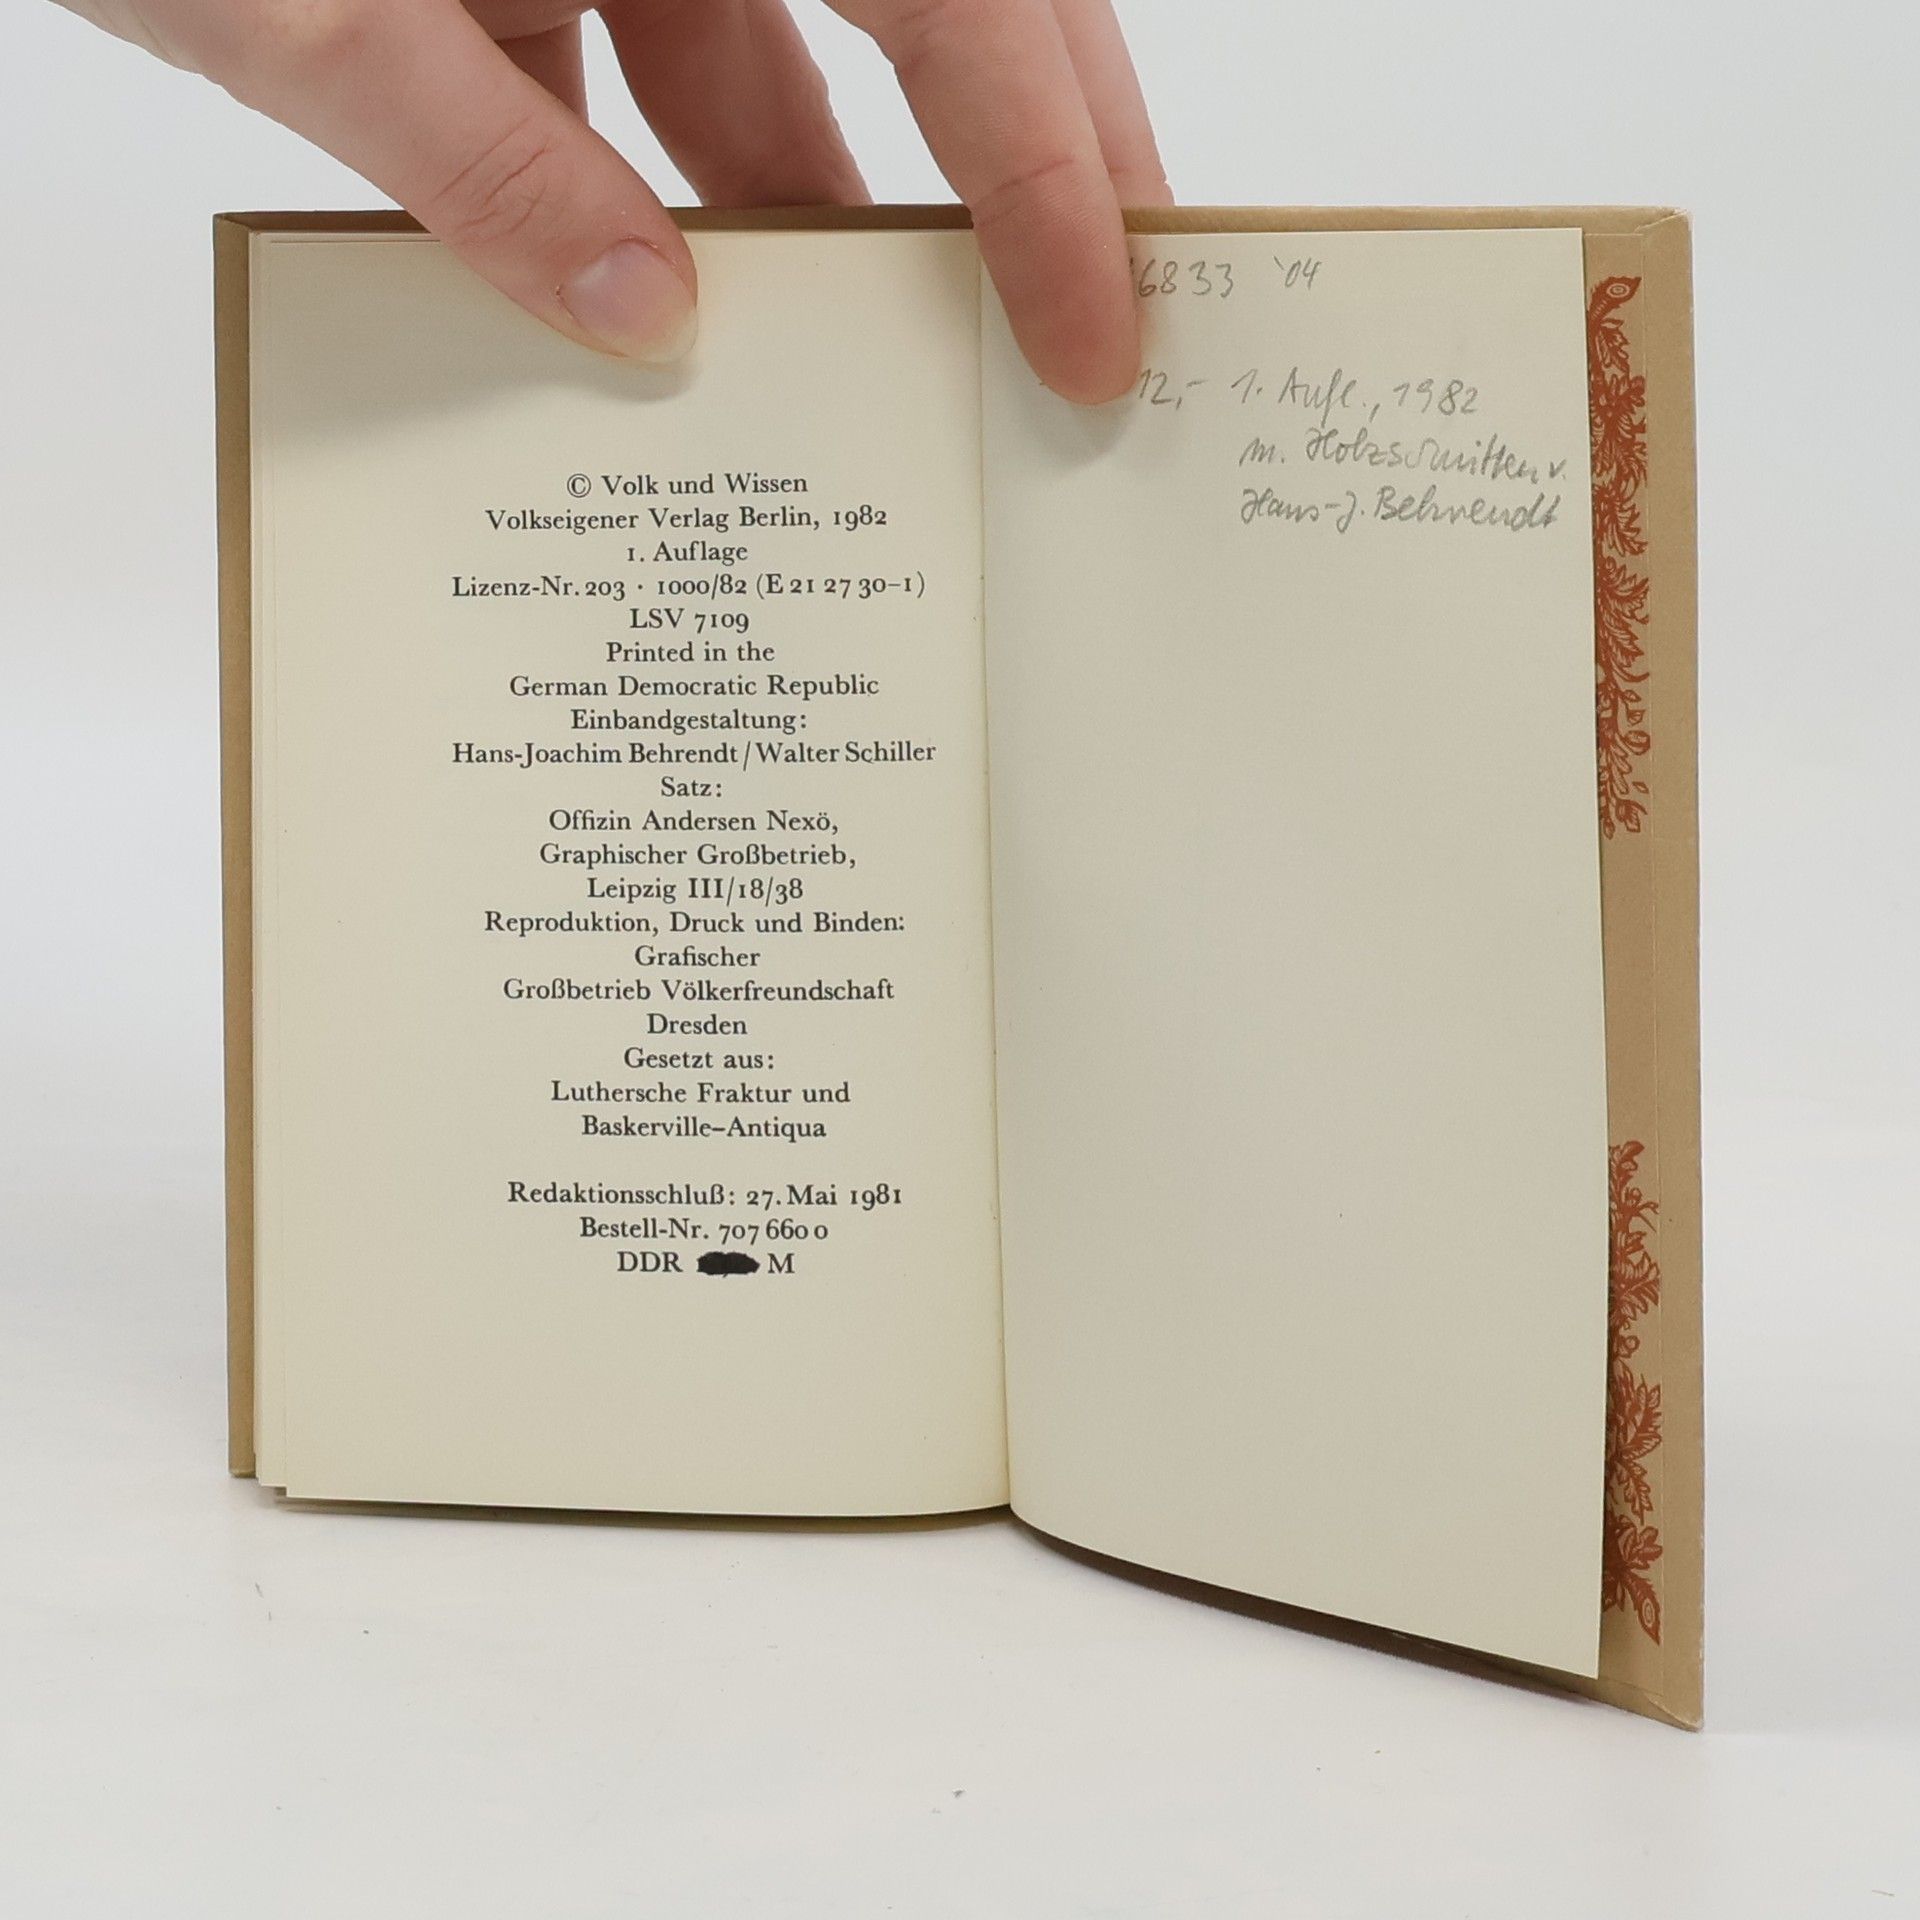 © Volk und Wissen
Volkseigener Verlag Berlin, 1982
1. Auflage
Lizenz-Nr. 203 · 1000/82 (E 21 27 30–1)
LSV 7109
Printed in the
German Democratic Republic
Einbandgestaltung:
Hans-Joachim Behrendt/Walter Schiller
Satz:
Offizin Andersen Nexö,
Graphischer Großbetrieb,
Leipzig III/18/38
Reproduktion, Druck und Binden:
Grafischer
Großbetrieb Völkerfreundschaft
Dresden
Gesetzt aus:
Luthersche Fraktur und
Baskerville–Antiqua
Redaktionsschluß: 27. Mai 1981
Bestell-Nr. 707 660 0
DDR M
6833 '04
12,- 1. Aufl., 1982
m. Holzschnitten v.
Hans-J. Behrendt